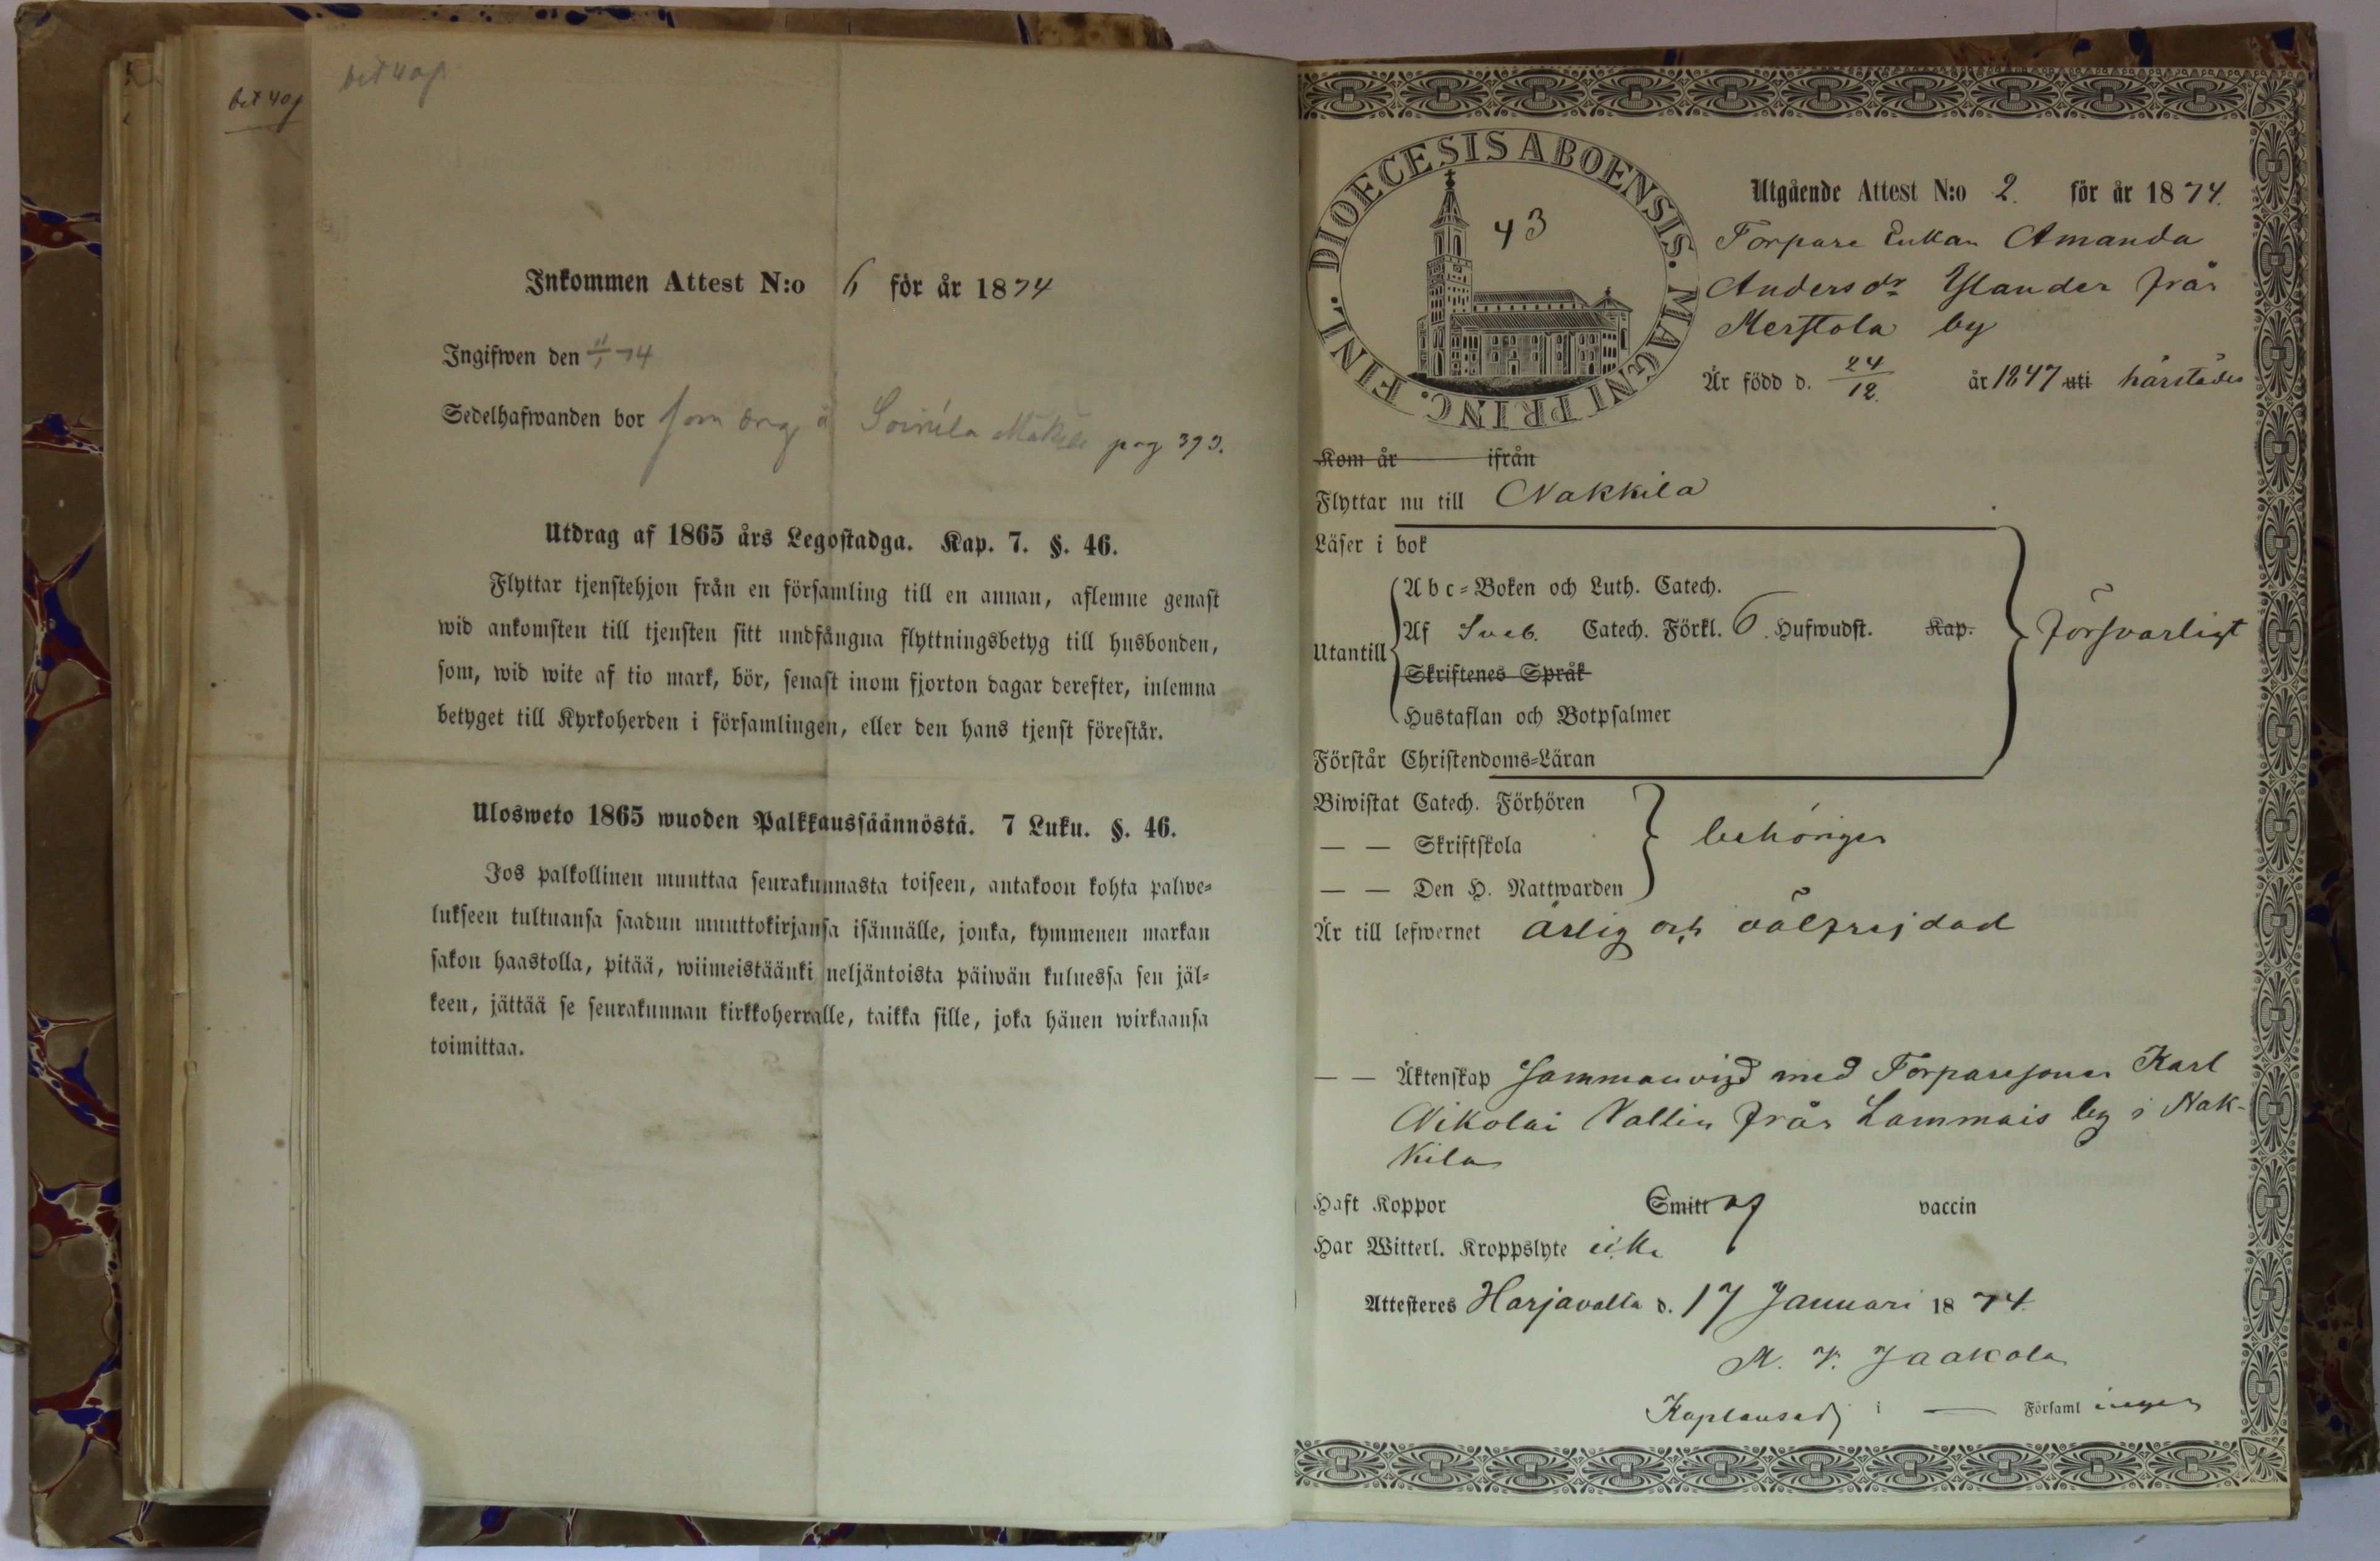 bet 40p
bet 40p
Inkommen Attest N:o 6 för år 1874
Ingifwen den 11/1 74
Sedelhafwanden bor som drg å Soinila Mäkilä pag 393.
Utdrag af 1865 års Legostadga. Kap. 7. §. 46.
Flyttar tjenstehjon från en församling till en annan, aflemne genast
wid ankomsten till tjensten sitt undfångna flyttningsbetyg till husbonden,
som, wid wite af tio mark, bör, senast inom fjorton dagar derefter, inlemna
betyget till Kyrkoherden i församlingen, eller den hans tjenst förestår.
Ulosweto 1865 wuoden Palkkaussäännöstä. 7 Luku. §. 46.
Jos palkollinen muuttaa seurakunnasta toiseen, antakoon kohta palwe=
lukseen tultuansa saadun muuttokirjansa isännälle, jonka, kymmenen markan
sakon haastolla, pitää, wiimeistäänki neljäntoista päiwän kuluessa sen jäl=
keen, jättää se seurakunnan kirkkoherralle, taikka sille, joka hänen wirkaansa
toimittaa.
DIOECESIS ABOENSIS. MAGNI PRINC. FINL.
43
Utgående Attest N:o 2. för år 1874.
Torpare Enkan Amanda
Andersdr Ylander från
Merstola by
Är född d. 24/12. år 1847 uti härstädes
Kom år ifrån
Flyttar nu till Nakkila
Läser i bok
Utantill
Abc=Boken och Luth. Catech.
Af Sveb. Catech. Förkl. 6. Hufwudst. Kap.
Skriftenes Språk
Hustaflan och Botpsalmer
Försvarligt
Förstår Christendoms=Läran
Biwistat Catech. Förhören
— — Skriftskola
behörigen
— — Den H. Nattwarden
Är till lefwernet ärlig och välfrejdad
— — Äktenskap Sammanvigd med Torparesonen Karl
Nikolai Vallin från Lammais by i Nak-
kila
Haft Koppor Smitt af vaccin
Har Witterl. Kroppslyte icke
Attesteres Harjavalla d. 17 Januari 1874.
M. V. Jaakola
Kaplansadj i — Församlingen